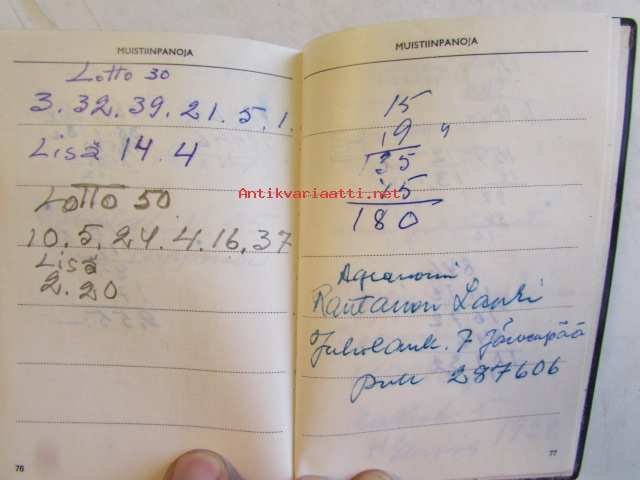 MUISTIINPANOJA
Lotto 30
3. 32. 39. 21. 5. 1.
Lisä 14. 4
Lotto 50
10. 5. 24. 4. 16. 37
Lisä
2. 20
76
MUISTIINPANOJA
15
19 4
135
45
180
Agronomi
Rautanon Lauri
Juholank. 7 Järvenpää
puh 287606
77
Antikvariaatti.net